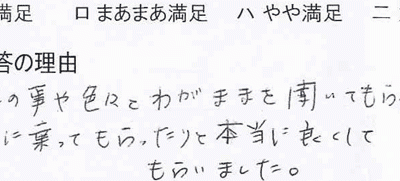 満足 ロ まあまあ満足 ハ やや満足 ニ
答の理由
の事や色々とわがままを聞いてもら
に乗ってもらったりと本当に良くして
もらいました。